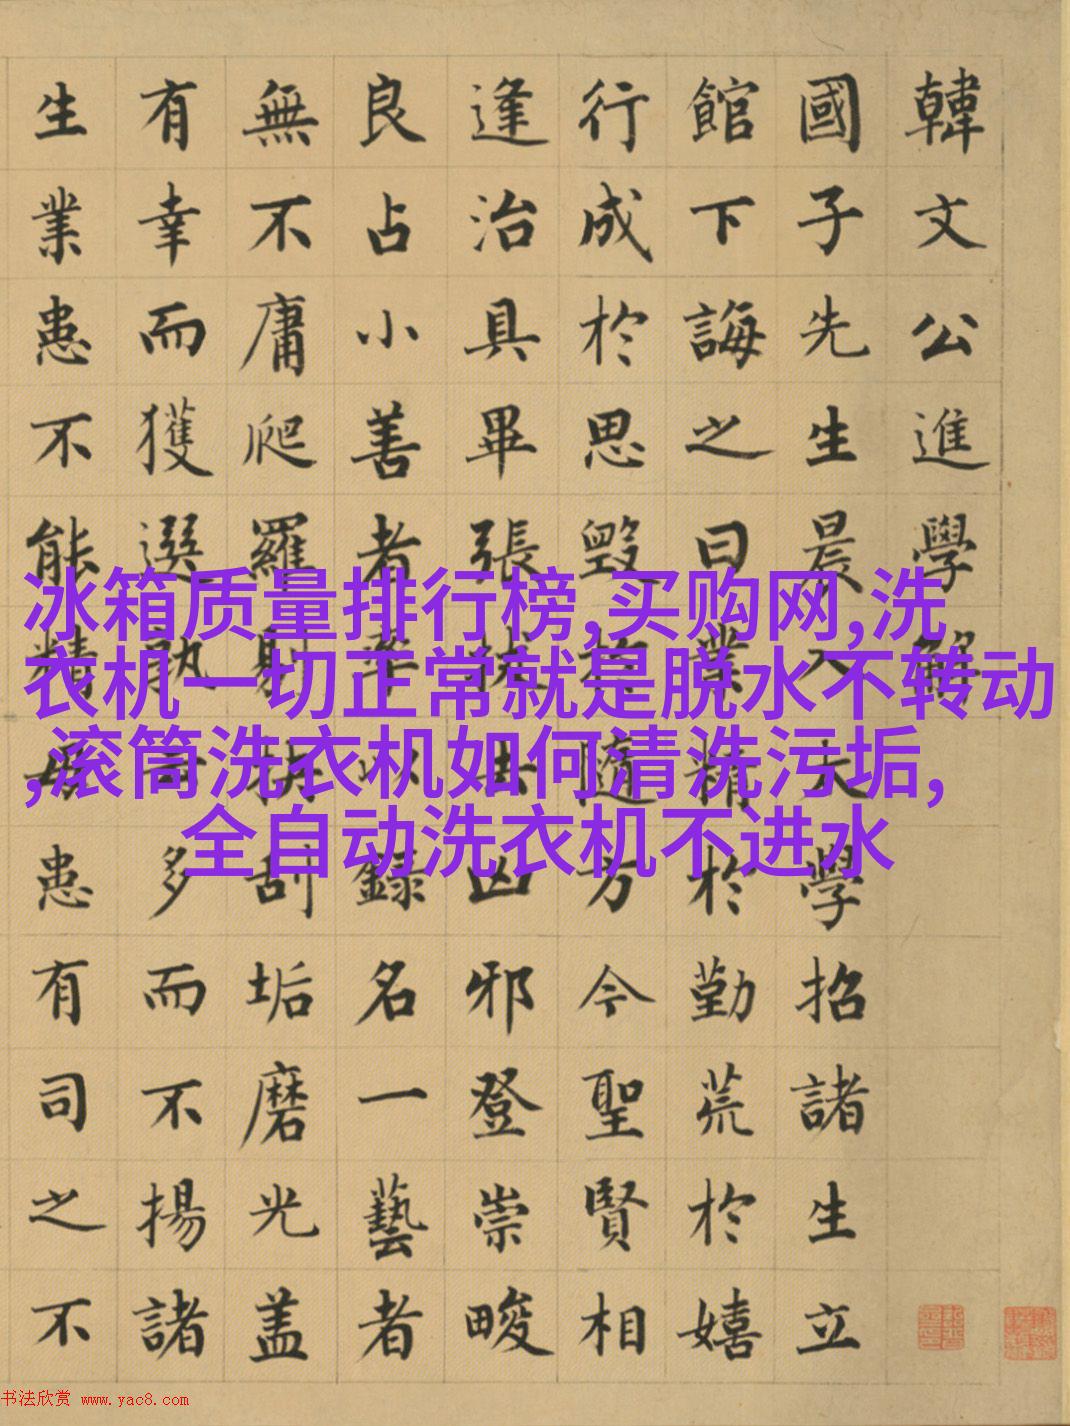 韓文公進學解
國子先生晨入太學招諸生立
館下誨之曰業精於勤荒於嬉
行成於思毀於隨方今聖賢相
逢治具畢張拔去凶邪登崇畯
良占小善者率以録名一藝者
無不庸爬羅剔抉刮垢磨光盖
有幸而獲選孰云多而不揚諸
生業患不能精患有司之不
冰箱质量排行榜,买购网,洗
衣机一切正常就是脱水不转动
,滚筒洗衣机如何清洗污垢,
全自动洗衣机不进水
书法欣赏 www.yac8.com